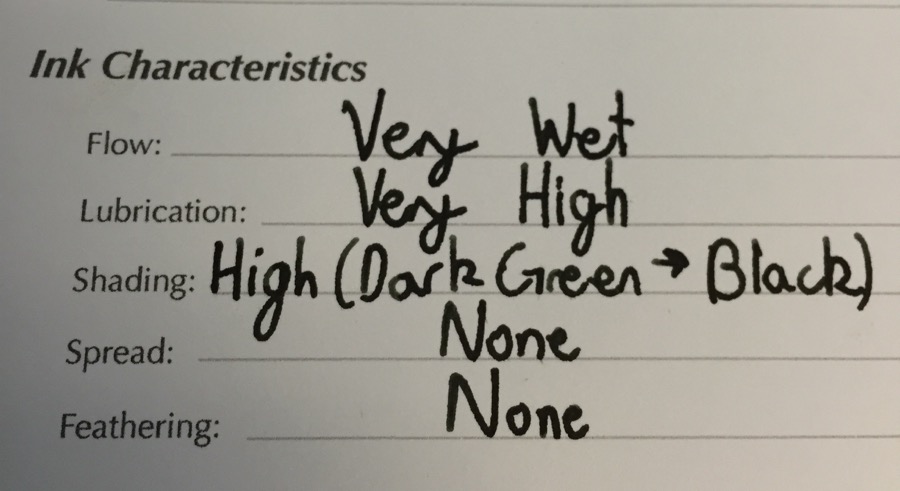 Ink Characteristics
Flow: Very Wet
Lubrication: Very High
Shading: High (Dark Green → Black)
Spread: None
Feathering: None